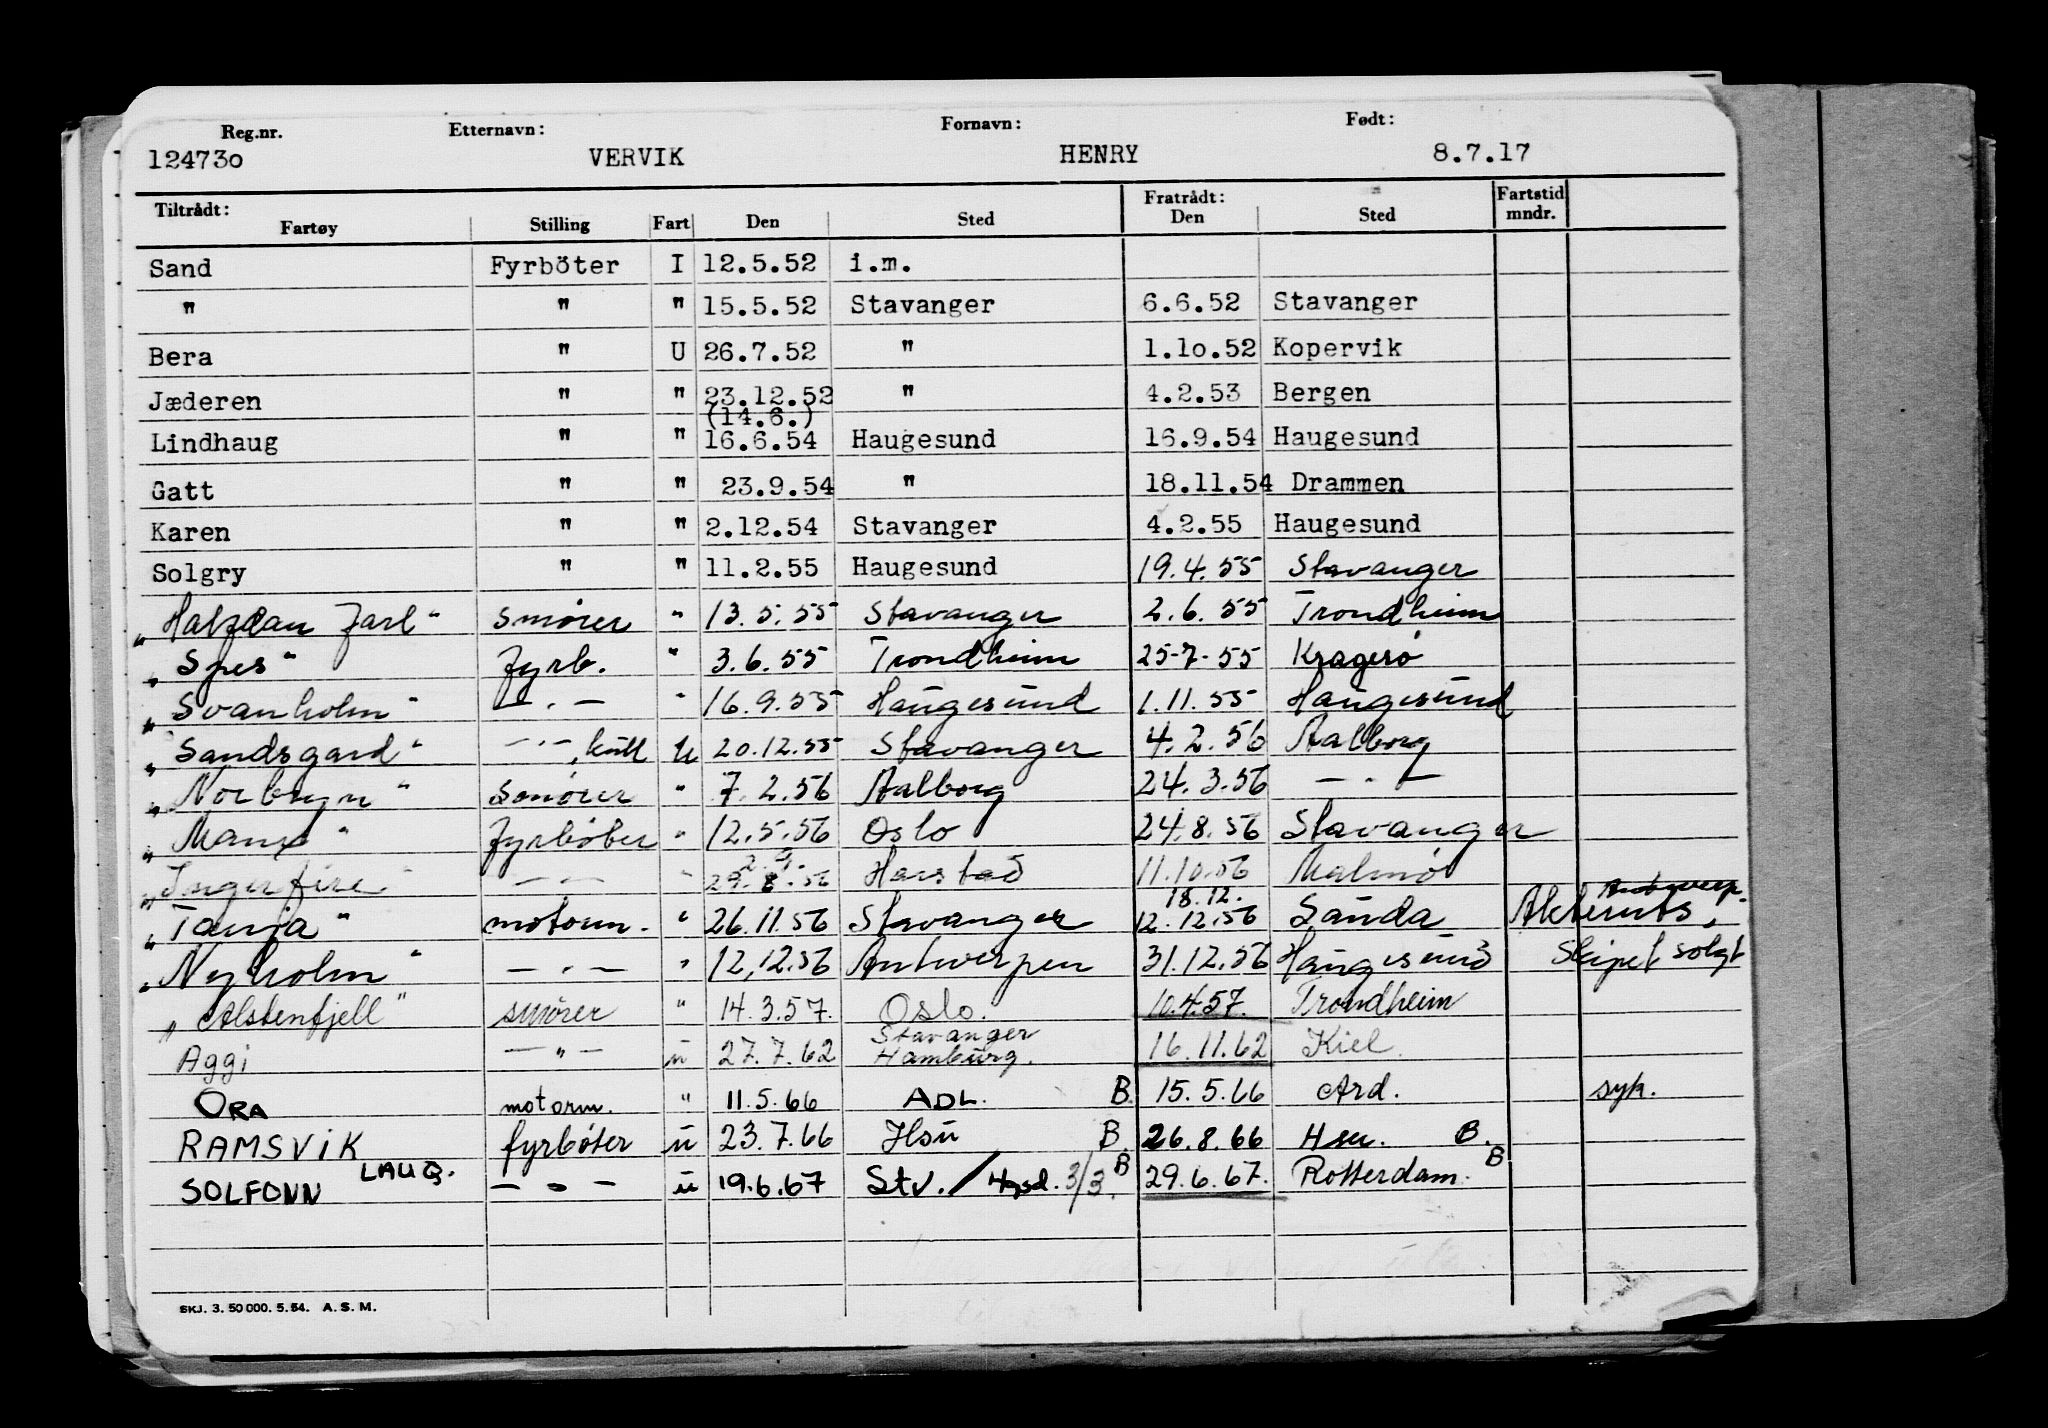 Reg.nr. Etternavn: Fornavn: Født:
124730 VERVIK HENRY 8.7.17
Tiltrådt: Fratrådt: Fartstid
Fartøy Stilling Fart Den Sted Den Sted mndr.
Sand Fyrböter I 12.5.52 i.m.
" " " 15.5.52 Stavanger 6.6.52 Stavanger
Bera " U 26.7.52 " 1.10.52 Kopervik
Jæderen " " 23.12.52 " 4.2.53 Bergen
(14.6.)
Lindhaug " " 16.6.54 Haugesund 16.9.54 Haugesund
Gatt " " 23.9.54 " 18.11.54 Drammen
Karen " " 2.12.54 Stavanger 4.2.55 Haugesund
Solgry " " 11.2.55 Haugesund 19.4.55 Stavanger
"Halfdan Jarl" smører " 13.5.55 Stavanger 2.6.55 Trondheim
"Spes" fyrb. " 3.6.55 Trondheim 25-7-55 Kragerø
"Svanholm" — . — " 16.9.55 Haugesund 1.11.55 Haugesund
"Sandsgard" — . — , kull U 20.12.55 Stavanger 4.2.56 Aalborg
"Norbryn" smører " 7.2.56 Aalborg 24.3.56 — . —
fyrbøter " 12.5.56 Oslo 24.8.56 Stavanger
2.9.
"Ingerfire" — — " 29.8.56 Harstad 11.10.56 Malmø
18.12. Antwerp.
"Tanja" motorm. " 26.11.56 Stavanger 12.12.56 Sauda
"Nyholm" — . — " 12.12.56 Antwerpen 31.12.56 Haugesund Skipet solgt
"Alstenfjell" smører " 14.3.57. Oslo. 10.4.57. Trondheim
Stavanger
Aggi — " — u 27.7.62 Hamburg. 16.11.62 Kiel.
ORA motorm. " 11.5.66 ADL. B. 15.5.66 Ard. syk.
RAMSVIK fyrbøter u 23.7.66 Hsu B. 26.8.66 Hsu. B.
LAUG.
SOLFONN — . — u 19.6.67 Stv. / Hgsd. 3/3. B 29.6.67. Rotterdam. B
SKJ. 3. 50 000. 5. 54. A. S. M.